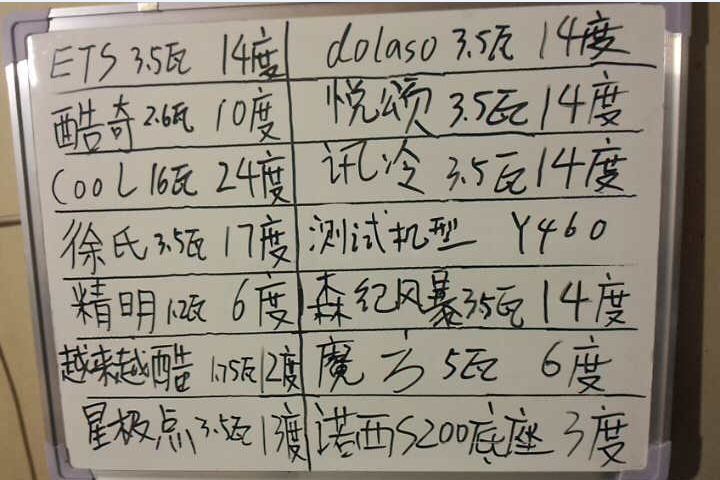 ETS 3.5瓦 14度 dolaso 3.5瓦 14度
酷奇 2.6瓦 10度 悦颂 3.5瓦 14度
COOL 16瓦 24度 讯冷 3.5瓦 14度
徐氏 3.5瓦 17度 测试机型 Y460
精明 1.2瓦 6度 森纪风暴 3.5瓦 14度
越来越酷 1.75瓦 12度 魔方 5瓦 6度
星极点 3.5瓦 13度 诺西S200底座 3度